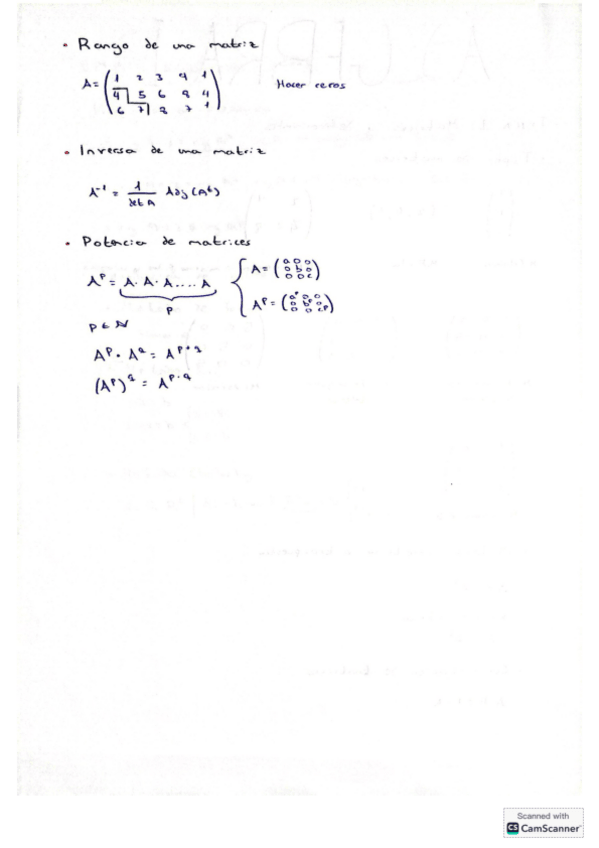 • Rango de una matriz
A = ( 1 2 3 9 1
4 5 6 8 4
6 7 8 7 1 )
Hacer ceros
• Inversa de una matriz
A⁻¹ = 1 / det A Adj (Aᵗ)
• Potencia de matrices
Aᵖ = A · A · A .... A
p
{ A = ( a 0 0
0 b 0
0 0 c )
Aᵖ = ( aᵖ 0 0
0 bᵖ 0
0 0 cᵖ )
p ∈ ℕ
Aᵖ · A^q = A^(p+q)
(Aᵖ)^q = A^(p·q)
Scanned with
CS CamScanner